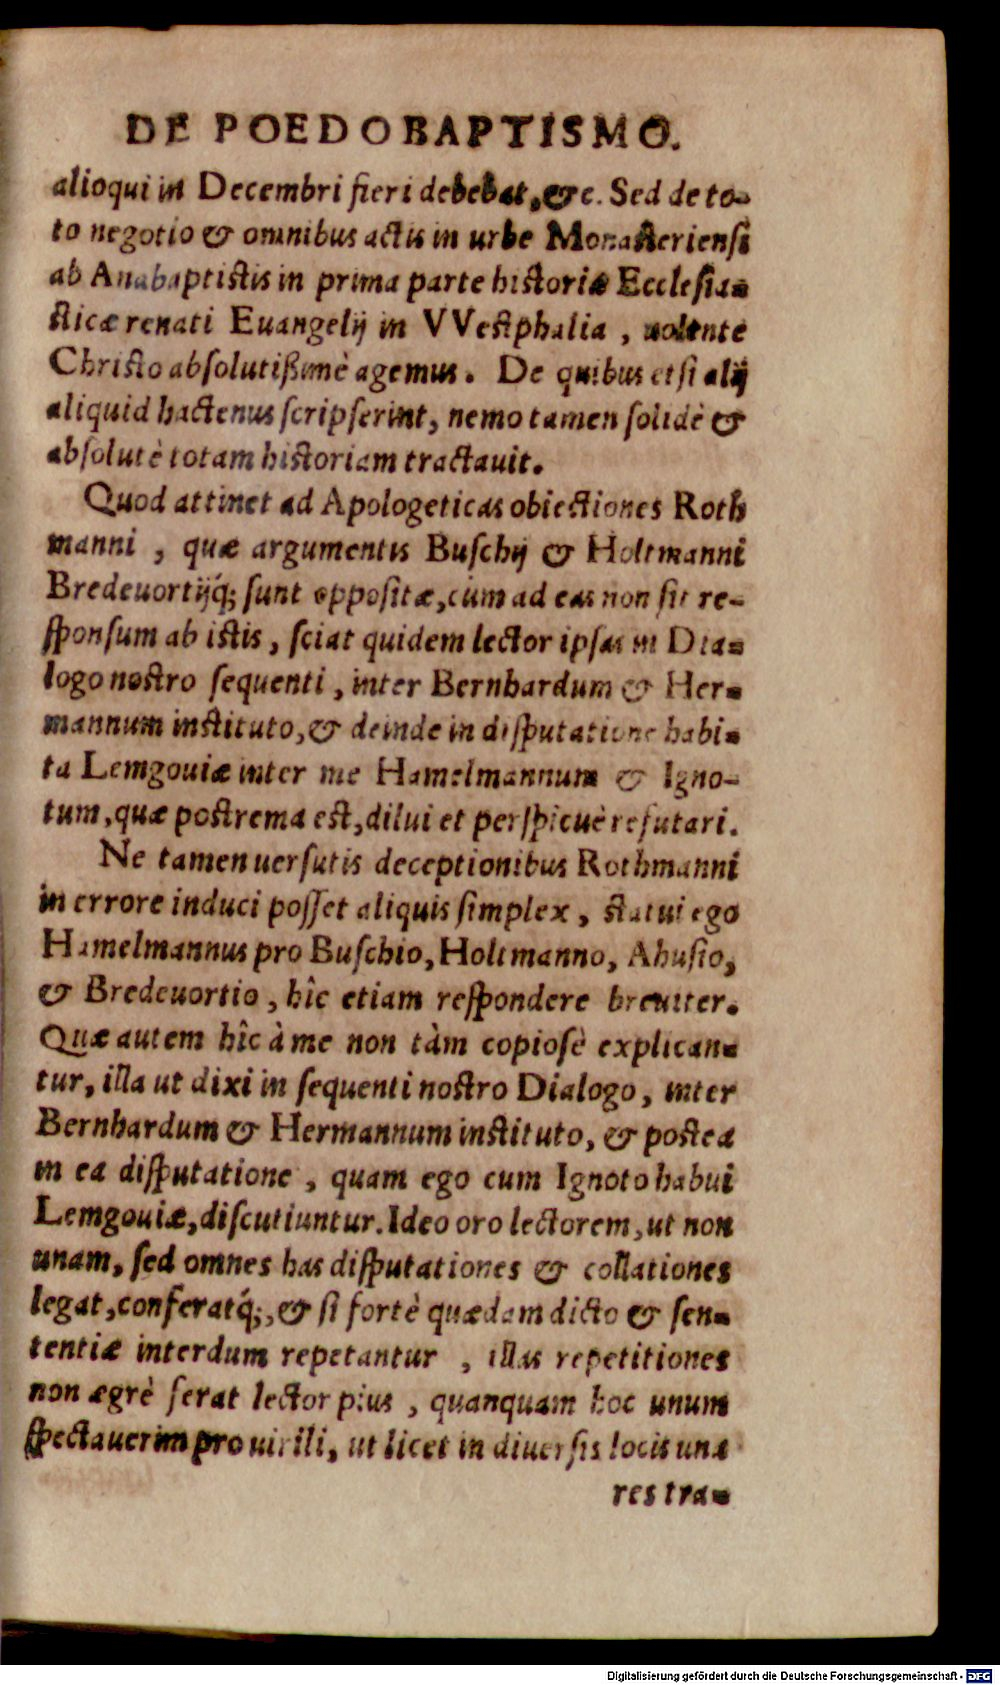 DE POEDOBAPTISMO.
alioqui in Decembri fieri debebat, &c. Sed de to-
to negotio & omnibus actis in urbe Monasteriensi
ab Anabaptistis in prima parte historiæ Ecclesia-
sticæ renati Euangelij in VVestphalia, uolente
Christo absolutißimè agemus. De quibus etsi alij
aliquid hactenus scripserint, nemo tamen solidè &
absolutè totam historiam tractauit.
Quod attinet ad Apologeticas obiectiones Roth
manni, quæ argumentis Buschij & Holtmanni
Bredeuortijq́; sunt oppositæ, cùm ad eas non sit re-
sponsum ab istis, sciat quidem lector ipsas in Dia-
logo nostro sequenti, inter Bernhardum & Her-
mannum instituto, & deinde in disputatione habi-
ta Lemgouiæ inter me Hamelmannum & Igno-
tum, quæ postrema est, dilui et perspicuè refutari.
Ne tamen uersutis deceptionibus Rothmanni
in errore induci posset aliquis simplex, statui ego
Hamelmannus pro Buschio, Holtmanno, Ahusio,
& Bredeuortio, hîc etiam respondere breuiter.
Quæ autem hîc à me non tàm copiosè explican-
tur, illa ut dixi in sequenti nostro Dialogo, inter
Bernhardum & Hermannum instituto, & postea
in ea disputatione, quam ego cum Ignoto habui
Lemgouiæ, discutiuntur. Ideo oro lectorem, ut non
unam, sed omnes has disputationes & collationes
legat, conferatq́;, & si fortè quædam dicto & sen-
tentiæ interdum repetantur, illas repetitiones
non ægrè ferat lector pius, quanquam hoc unum
spectauerim pro uirili, ut licet in diuersis locis unæ
res tra-
Digitalisierung gefördert durch die Deutsche Forschungsgemeinschaft - DFG